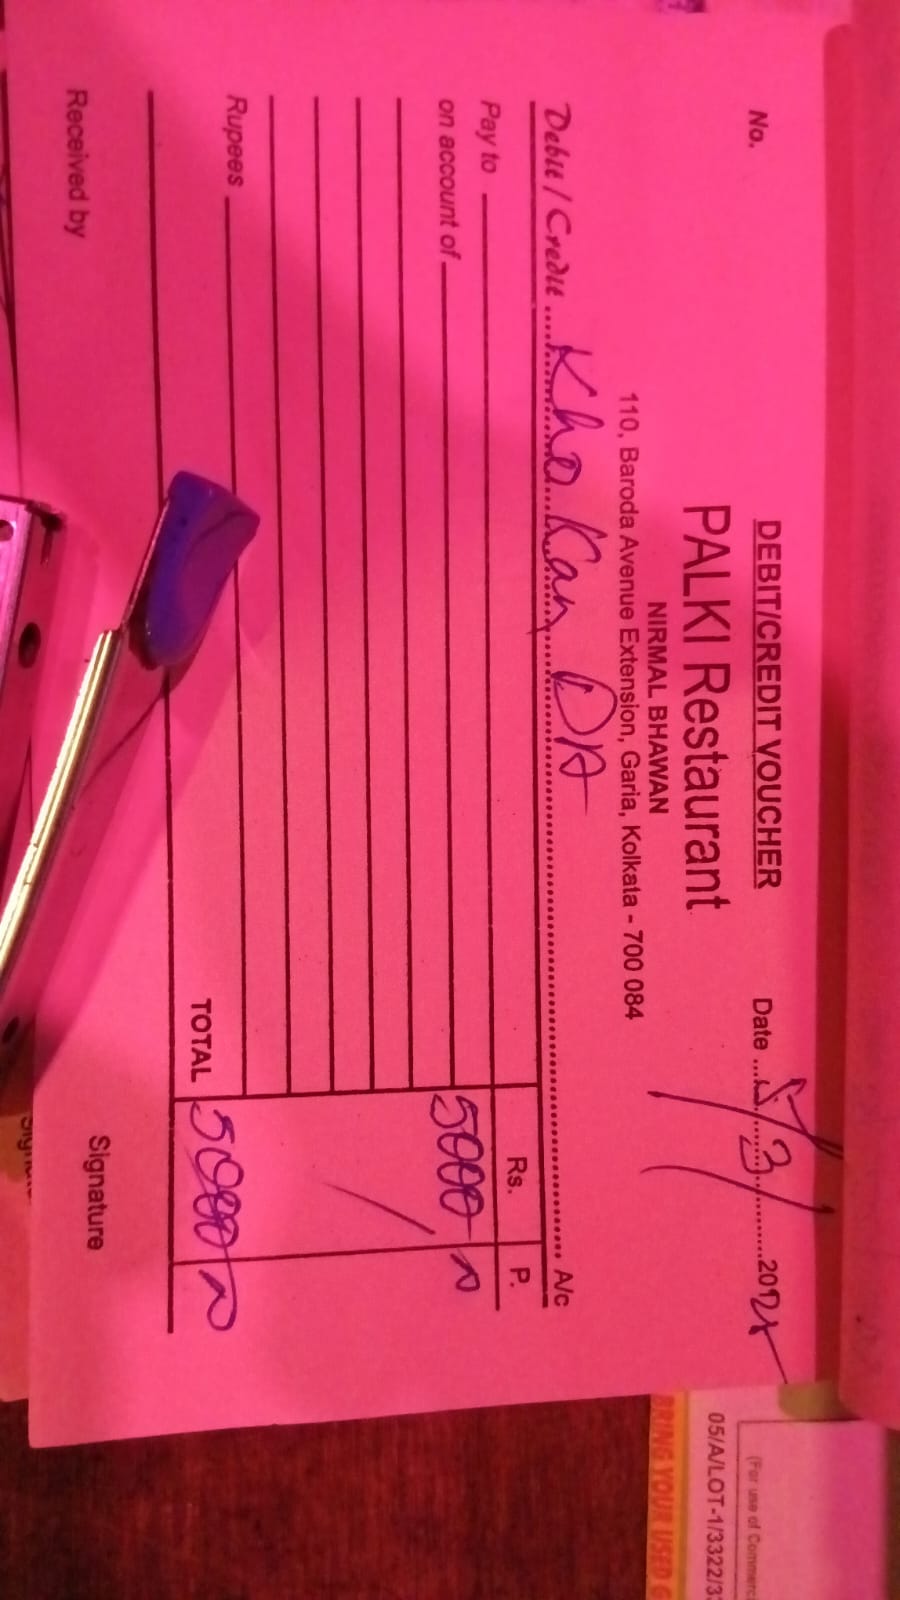 DEBIT/CREDIT VOUCHER
No.
Date ....5/3............2012
PALKI Restaurant
NIRMAL BHAWAN
110, Baroda Avenue Extension, Garia, Kolkata - 700 084
Debit / Credit ....Kho Kan DA.... A/c
Rs. P.
Pay to
on account of 5000
Rupees
TOTAL 5000
Received by
Signature
(For use of Commerc
05/A/LOT-1/3322/3
BRING YOUR USED